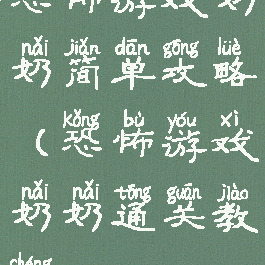 恐怖游戏奶
nǎi jiǎn dān gōng lüè
奶简单攻略
kǒng bù yóu xì
(恐怖游戏
nǎi nǎi tōng guān jiào
奶奶通关教
chéng